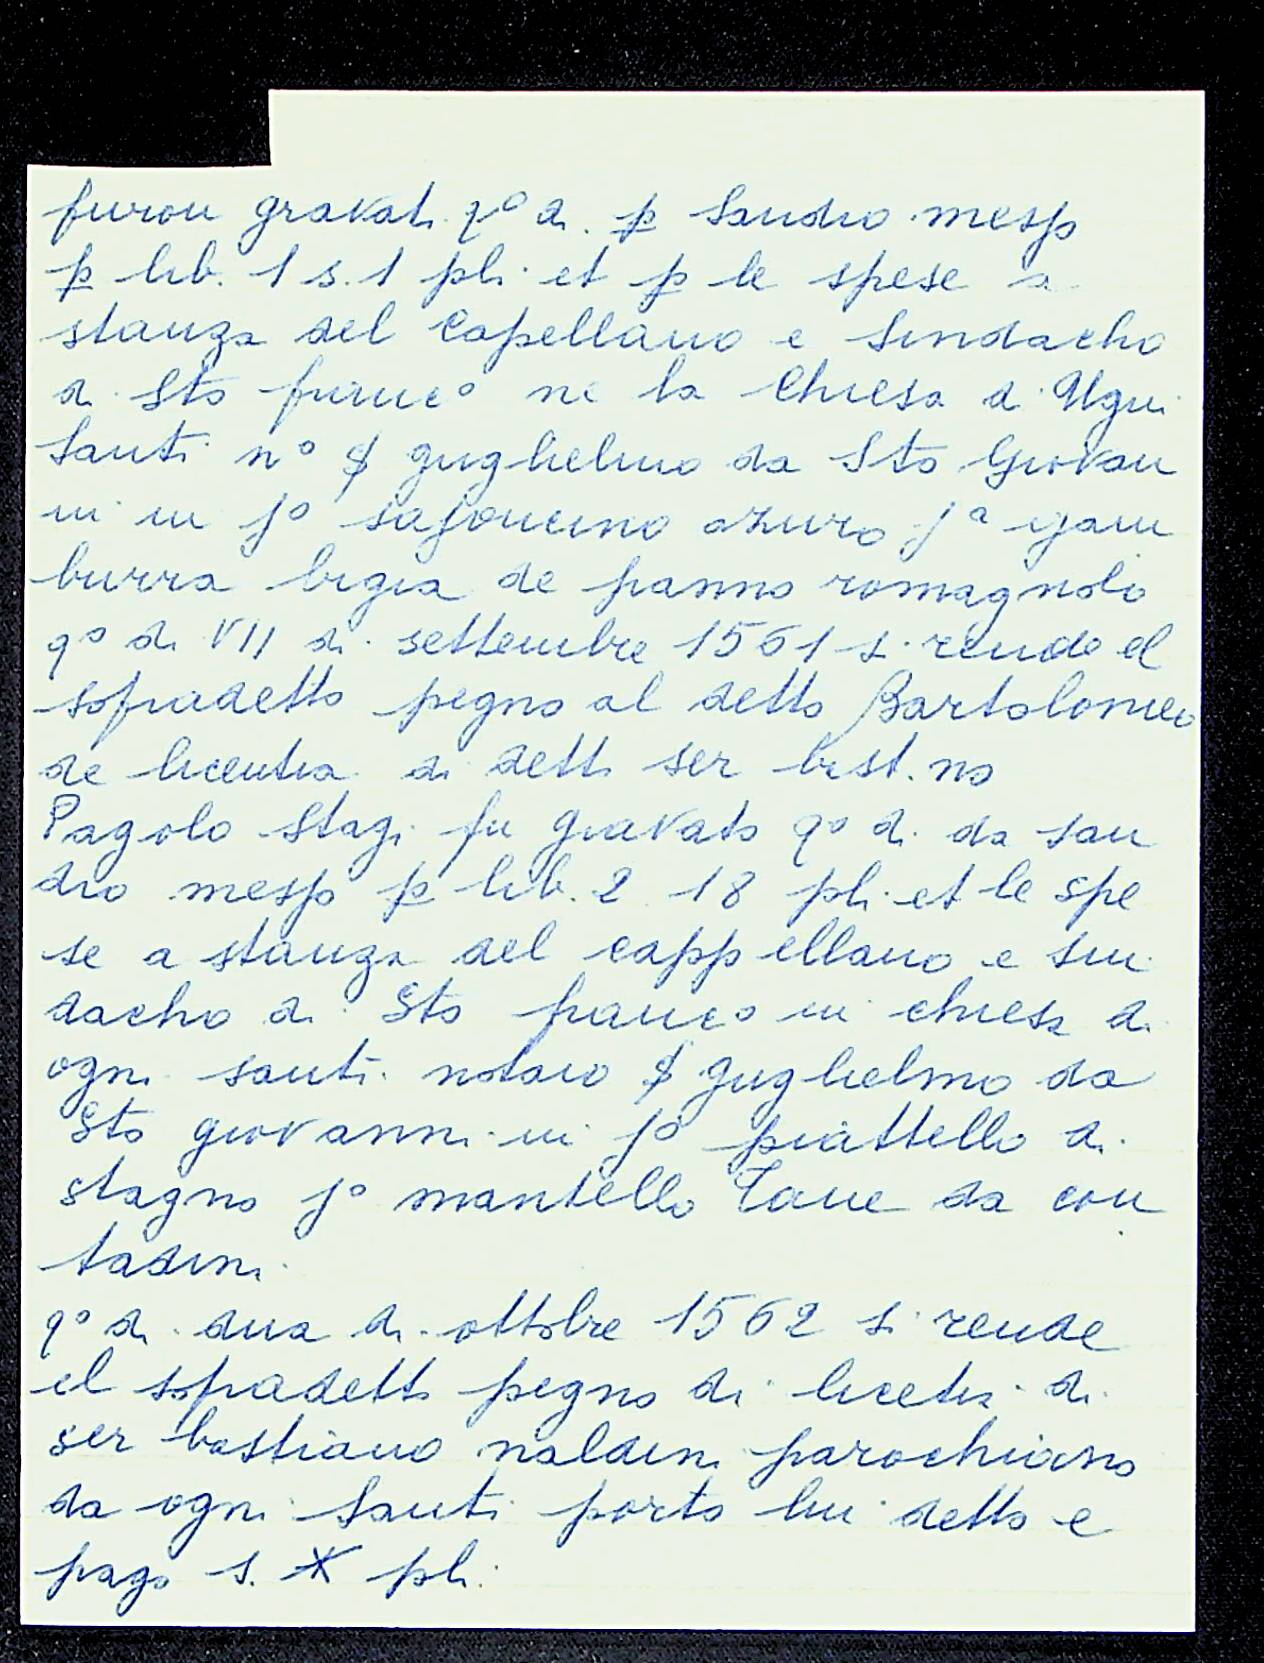 furon gravati qº di ꝑ Sandro messo
ꝑ lib. 1 s. 1 pli et ꝑ le spese a
stanza del Capellano e Sindacho
di Sto franc.º ne la Chiesa di Ugni
Santi nº $ guglielmo da Sto Giovan
ni in jº saponcino azuro jª gam
burra bigia de panno romagnolo
qº di VII di settembre 1561 si rende el
sopradetto pegno al detto Bartolomeo
de licentia di detti ser bast.no
Pagolo Stagi fu gravato qº di da san
dro messo ꝑ lib. 2 18 pli et le spe
se a stanza del cappellano e sin
dacho di Sto franc.º in chiesa di
ogni santi notaio $ guglielmo da
Sto giovanni in jº piattello di
stagno jº mantello Tane da con
tadini
qº di dua di ottobre 1562 si rende
el sopradetto pegno di licetia di
ser bastiano naldini parochiano
da ogni Santi porto lui detto e
pago s. X pli